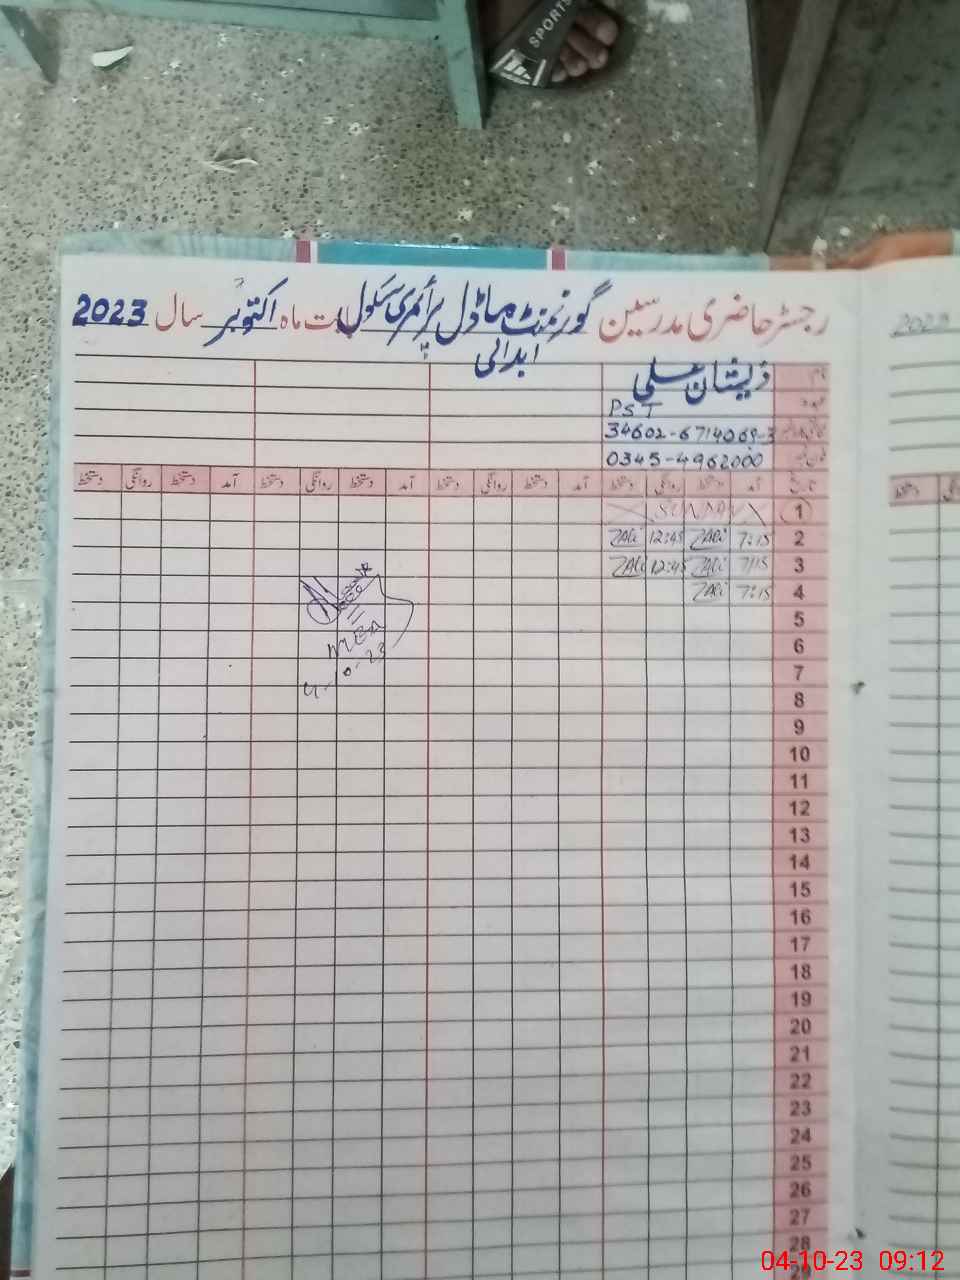 SPORTS
رجسٹر حاضری مدرسین گورنمنٹ ماڈل پرائمری سکول ابدالی بابت ماہ اکتوبر سال 2023
2023
نام ذیشان علی
عہدہ PST
34602-6714069-3
فون نمبر 0345-4962000
تاریخ آمد دستخط روانگی دستخط آمد دستخط روانگی دستخط آمد دستخط روانگی دستخط دستخط
1 SUNDAY
2 7:15 ZAli 12:45 ZAli
3 7:15 ZAli 12:45 ZAli
4 7:15 ZAli
5
6
7
8
9
10
11
12
13
14
15
16
17
18
19
20
21
22
23
24
25
26
27
28
29
MEA
4-10-23
04-10-23 09:12